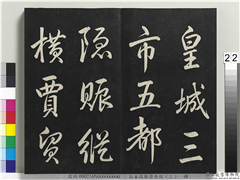 皇城三
市五都
隱賑縱
橫賈貿
22